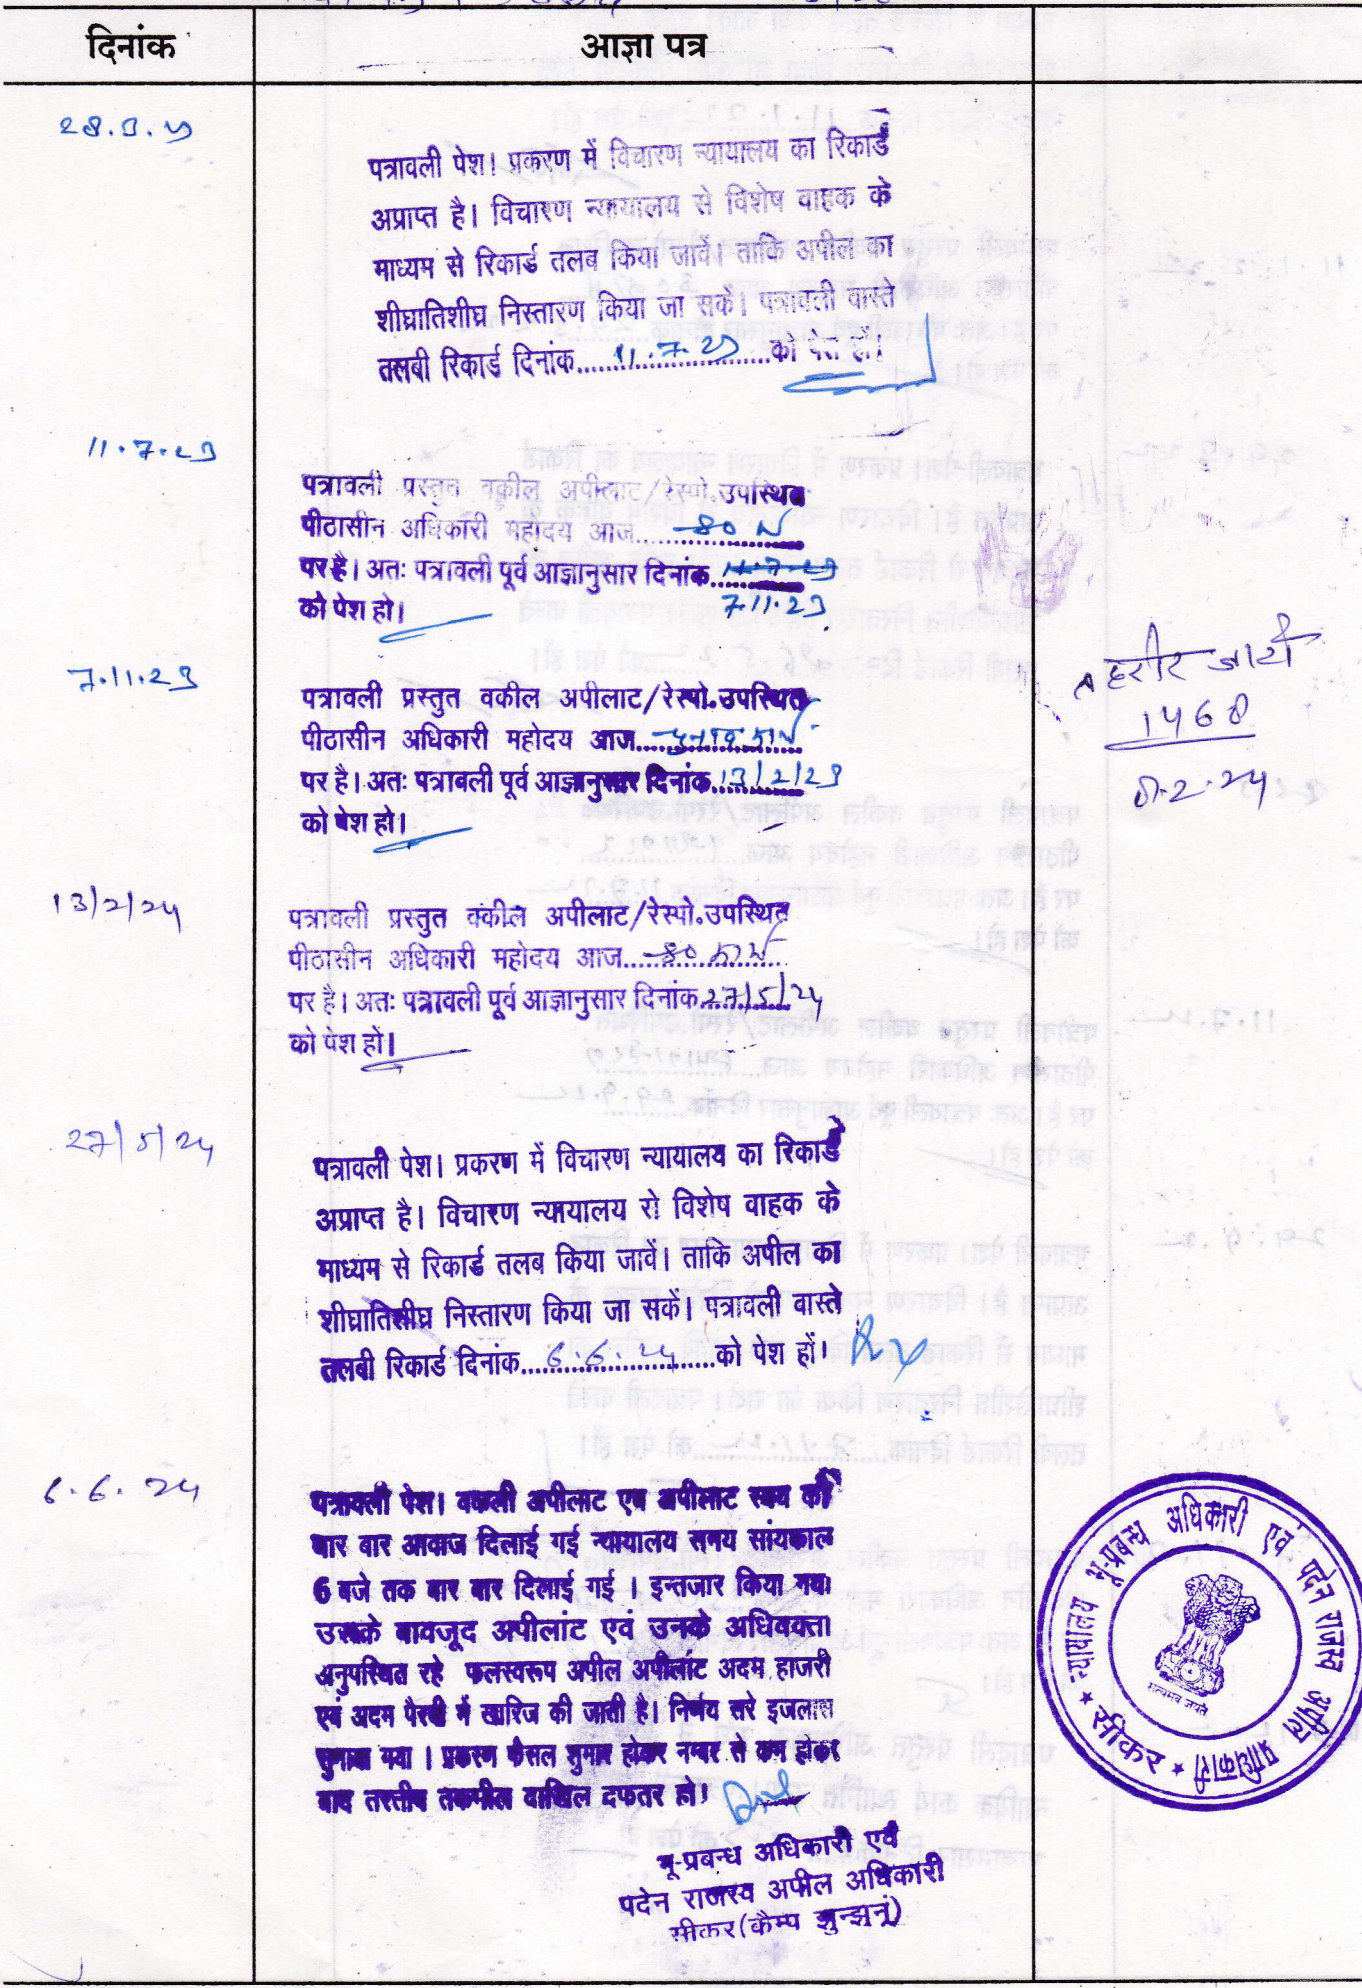 दिनांक
आज्ञा पत्र
पत्रावली पेश। प्रकरण में विचारण न्यायालय का रिकार्ड
अप्राप्त है। विचारण न्यायालय से विशेष वाहक के
माध्यम से रिकार्ड तलब किया जावें। ताकि अपील का
शीघ्रातिशीघ्र निस्तारण किया जा सकें। पत्रावली वास्ते
तलबी रिकार्ड दिनांक 11.7.23 को पेश हों।
11.7.23
पत्रावली प्रस्तुत वकील अपीलाट/रेस्पो.उपस्थित
पीठासीन अधिकारी महोदय आज
पर है। अतः पत्रावली पूर्व आज्ञानुसार दिनांक 11.7.23
7.11.23
को पेश हो।
7.11.23
पत्रावली प्रस्तुत वकील अपीलाट/रेस्पो.उपस्थित
पीठासीन अधिकारी महोदय आज
पर है। अतः पत्रावली पूर्व आज्ञानुसार दिनांक 13/2/23
को पेश हो।
तहरीर जारी
1468
8.2.24
13/2/24
पत्रावली प्रस्तुत वकील अपीलाट/रेस्पो.उपस्थित
पीठासीन अधिकारी महोदय आज
पर है। अतः पत्रावली पूर्व आज्ञानुसार दिनांक 27/5/24
को पेश हो।
27/5/24
पत्रावली पेश। प्रकरण में विचारण न्यायालय का रिकार्ड
अप्राप्त है। विचारण न्यायालय से विशेष वाहक के
माध्यम से रिकार्ड तलब किया जावें। ताकि अपील का
शीघ्रातिशीघ्र निस्तारण किया जा सकें। पत्रावली वास्ते
तलबी रिकार्ड दिनांक 6.6.24 को पेश हों।
6.6.24
पत्रावली पेश। वकली अपीलाट एव अपीलाट स्वय को
बार बार आवाज दिलाई गई न्यायालय समय सांयकाल
6 बजे तक बार बार दिलाई गई । इन्तजार किया गया
उसके बावजूद अपीलांट एवं उनके अधिवक्ता
अनुपस्थित रहे फलस्वरूप अपील अपीलांट अदम हाजरी
एवं अदम पैरवी में खारिज की जाती है। निर्णय सरे इजलास
सुनाया गया । प्रकरण फैसल सुमार होकर नम्बर से कम होकर
बाद तरतीब तकमील दाखिल दफतर हो।
भू-प्रबन्ध अधिकारी एवं
पदेन राजस्व अपील अधिकारी
सीकर (कैम्प झुन्झुनूं)
न्यायालय भू-प्रबन्ध अधिकारी एवं पदेन राजस्व अपील प्राधिकारी
सीकर
सत्यमेव जयते